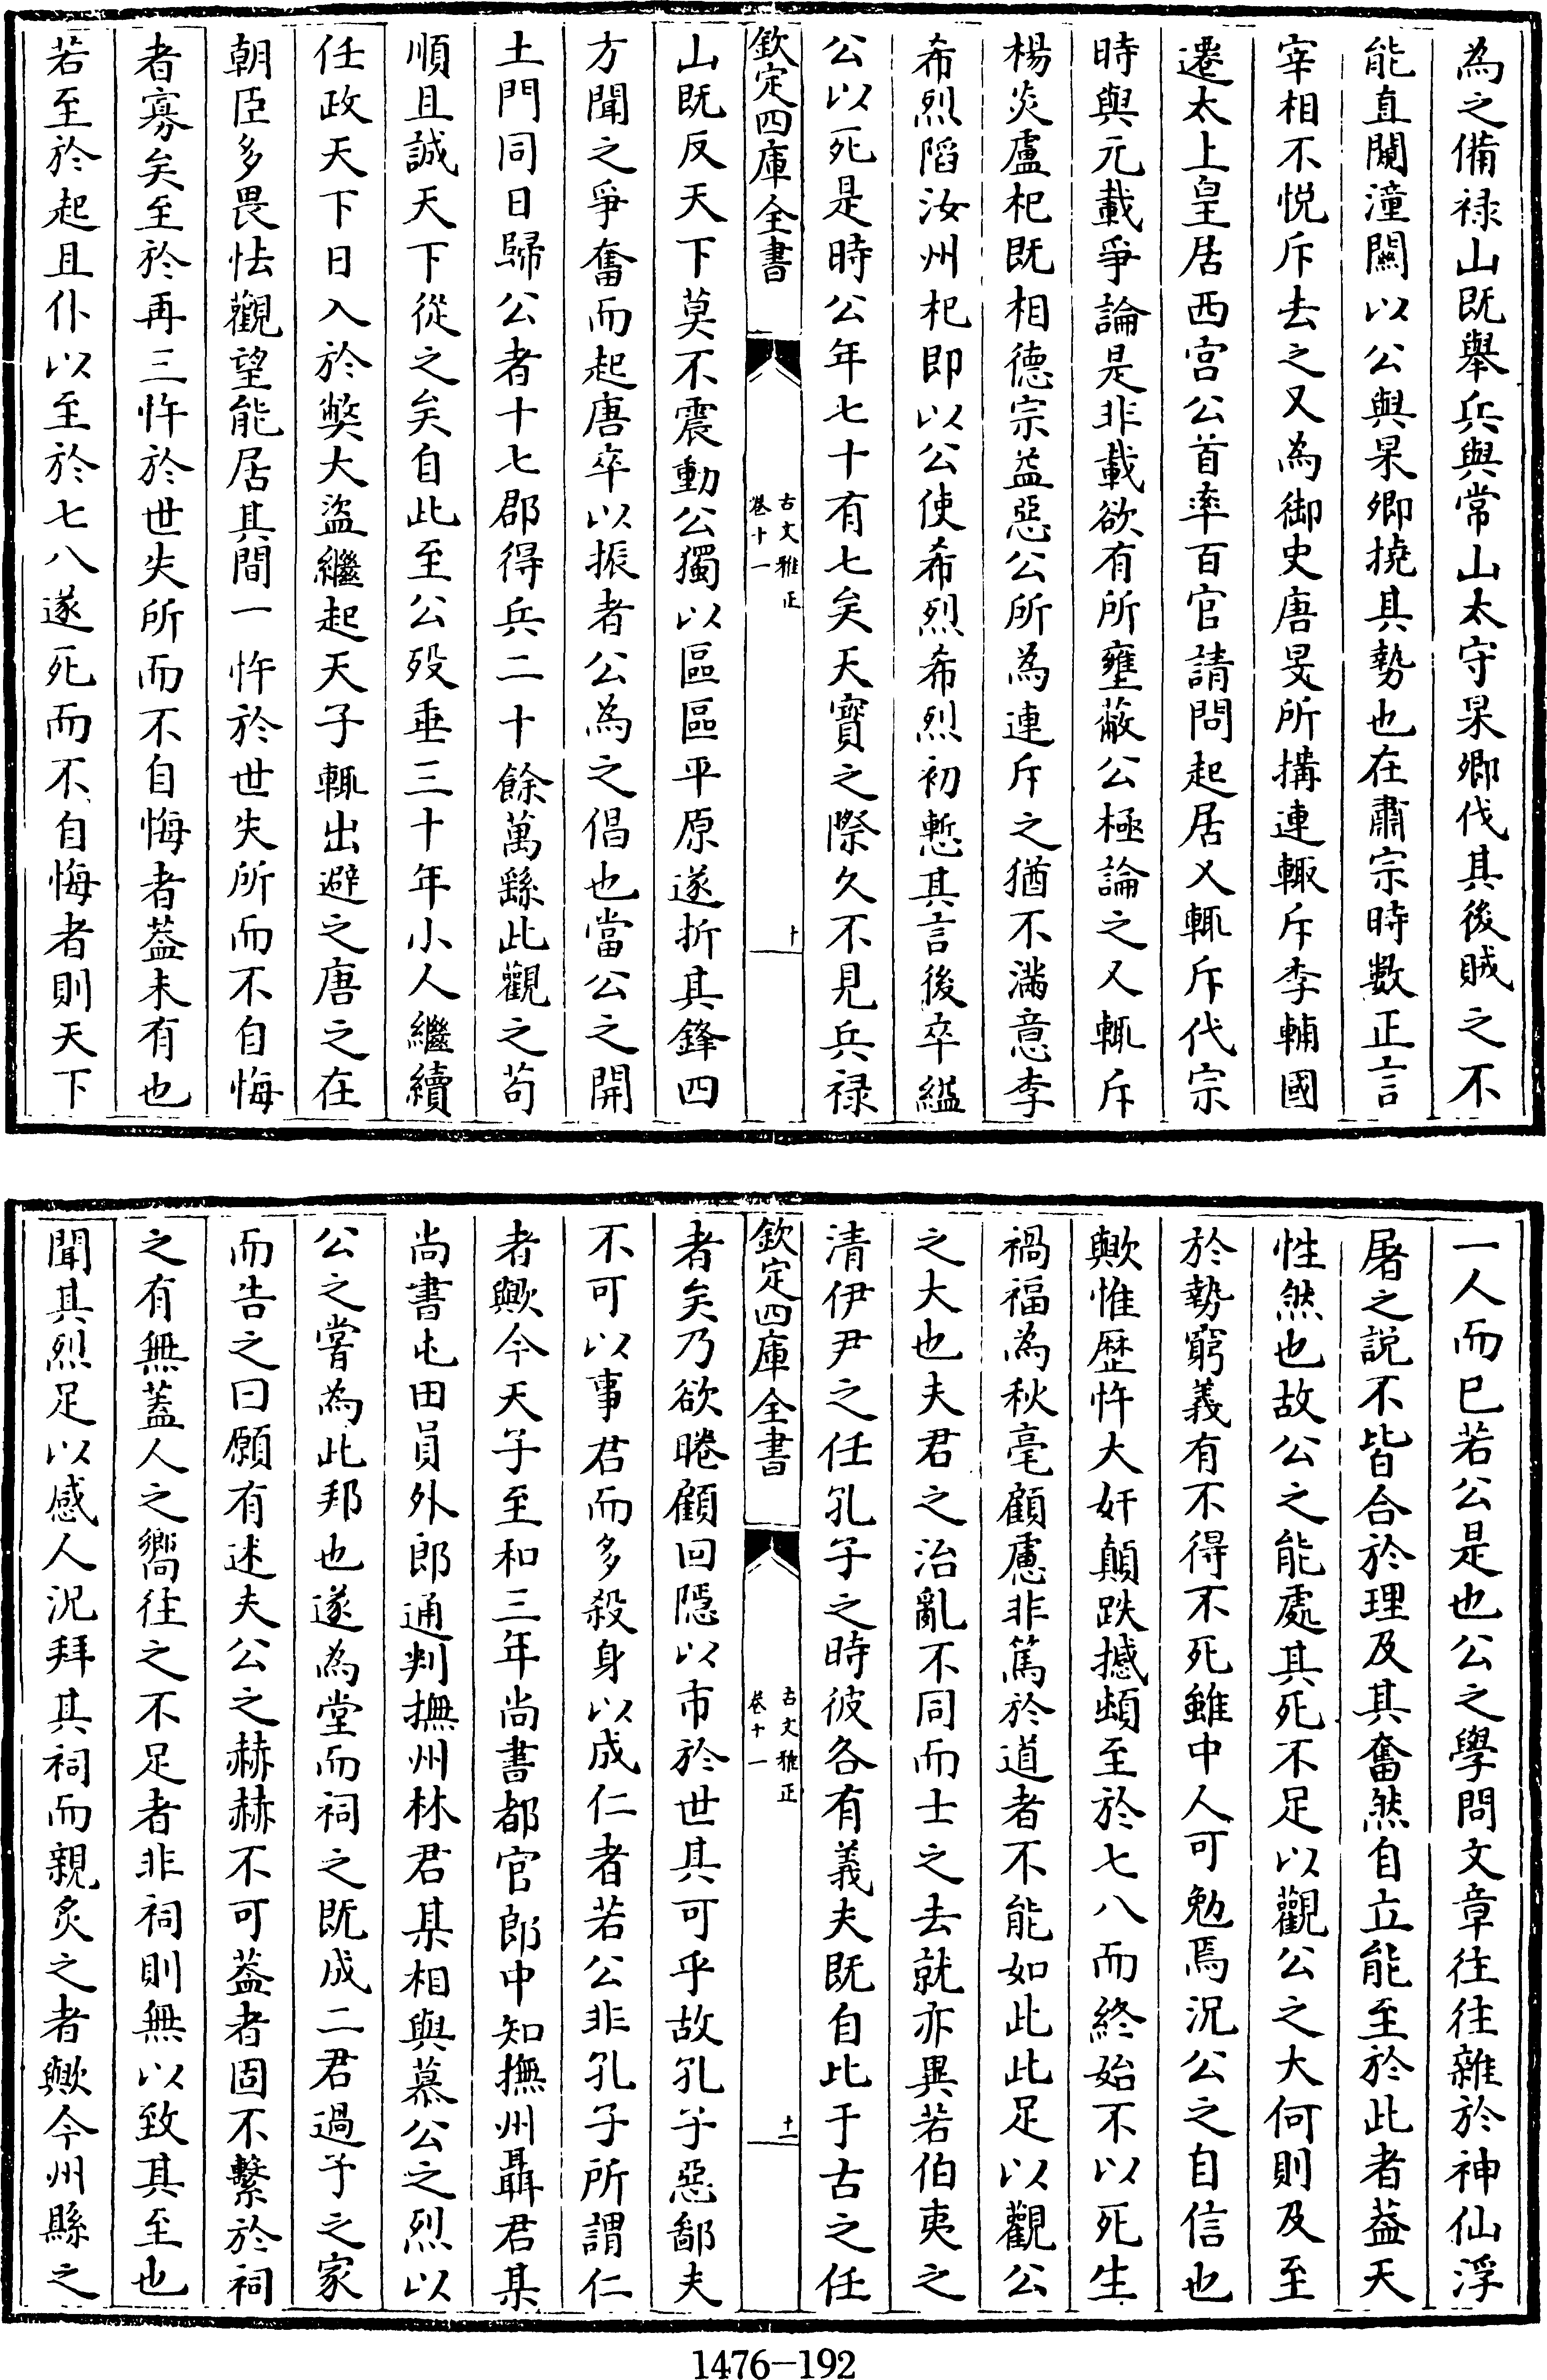 為之備禄山既舉兵與常山太守杲卿伐其後賊之不
能直闚潼關以公與杲卿撓其勢也在肅宗時數正言
宰相不悦斥去之又為御史唐旻所搆連輙斥李輔國
遷太上皇居西宫公首率百官請問起居又輙斥代宗
時與元載爭論是非載欲有所壅蔽公極論之又輙斥
楊炎盧杞既相德宗益惡公所為連斥之猶不滿意李
希烈陷汝州杞即以公使希烈希烈初慙其言後卒縊
公以死是時公年七十有七矣天寳之際久不見兵禄
欽定四庫全書
古文雅正
卷十一
十
山既反天下莫不震動公獨以區區平原遂折其鋒四
方聞之爭奮而起唐卒以振者公為之倡也當公之開
土門同日歸公者十七郡得兵二十餘萬繇此觀之茍
順且誠天下從之矣自此至公殁垂三十年小人繼續
任政天下日入於獘大盜繼起天子輙出避之唐之在
朝臣多畏怯觀望能居其間一忤於世失所而不自悔
者寡矣至於再三忤於世失所而不自悔者葢未有也
若至於起且仆以至於七八遂死而不自悔者則天下
一人而已若公是也公之學問文章往往雜於神仙浮
屠之説不皆合於理及其奮然自立能至於此者葢天
性然也故公之能處其死不足以觀公之大何則及至
於勢窮義有不得不死雖中人可勉焉況公之自信也
歟惟歷忤大奸顛跌撼頓至於七八而終始不以死生
禍福為秋毫顧慮非篤於道者不能如此此足以觀公
之大也夫君之治亂不同而士之去就亦異若伯夷之
清伊尹之任孔子之時彼各有義夫既自比于古之任
欽定四庫全書
古文雅正
卷十一
十一
者矣乃欲睠顧回隱以市於世其可乎故孔子惡鄙夫
不可以事君而多殺身以成仁者若公非孔子所謂仁
者歟今天子至和三年尚書都官郎中知撫州聶君某
尚書屯田員外郎通判撫州林君某相與慕公之烈以
公之嘗為此邦也遂為堂而祠之既成二君過予之家
而告之曰願有述夫公之赫赫不可葢者固不繫於祠
之有無蓋人之嚮往之不足者非祠則無以致其至也
聞其烈足以感人況拜其祠而親炙之者歟今州縣之
1476-192